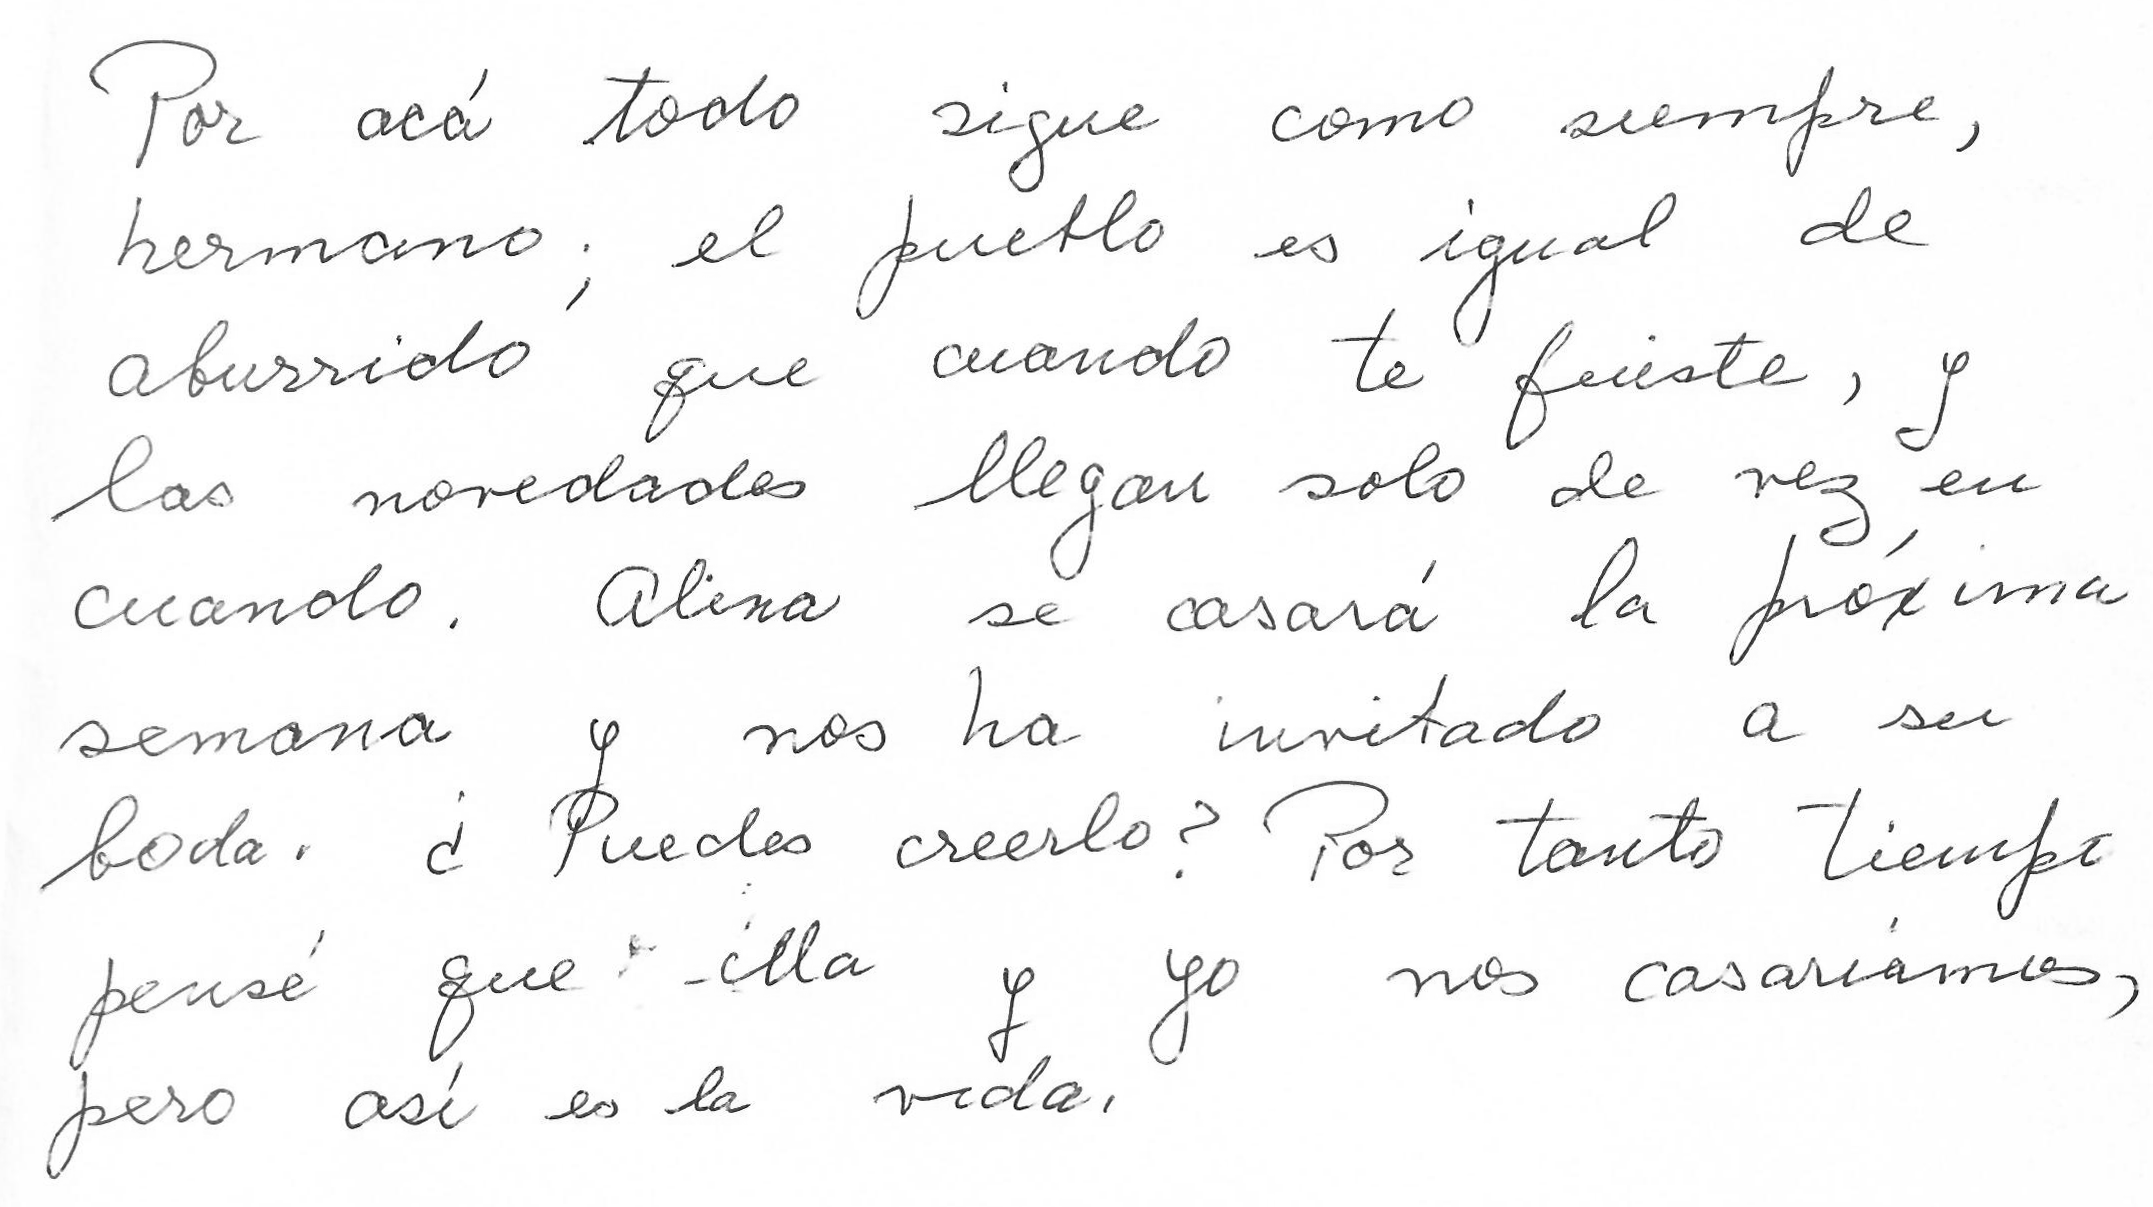 Por acá todo sigue como siempre,
hermano; el pueblo es igual de
aburrido que cuando te fuiste, y
las novedades llegan solo de vez en
cuando. Alina se casará la próxima
semana y nos ha invitado a su
boda. ¿Puedes creerlo? Por tanto tiempo
pensé que ella y yo nos casaríamos,
pero así es la vida.